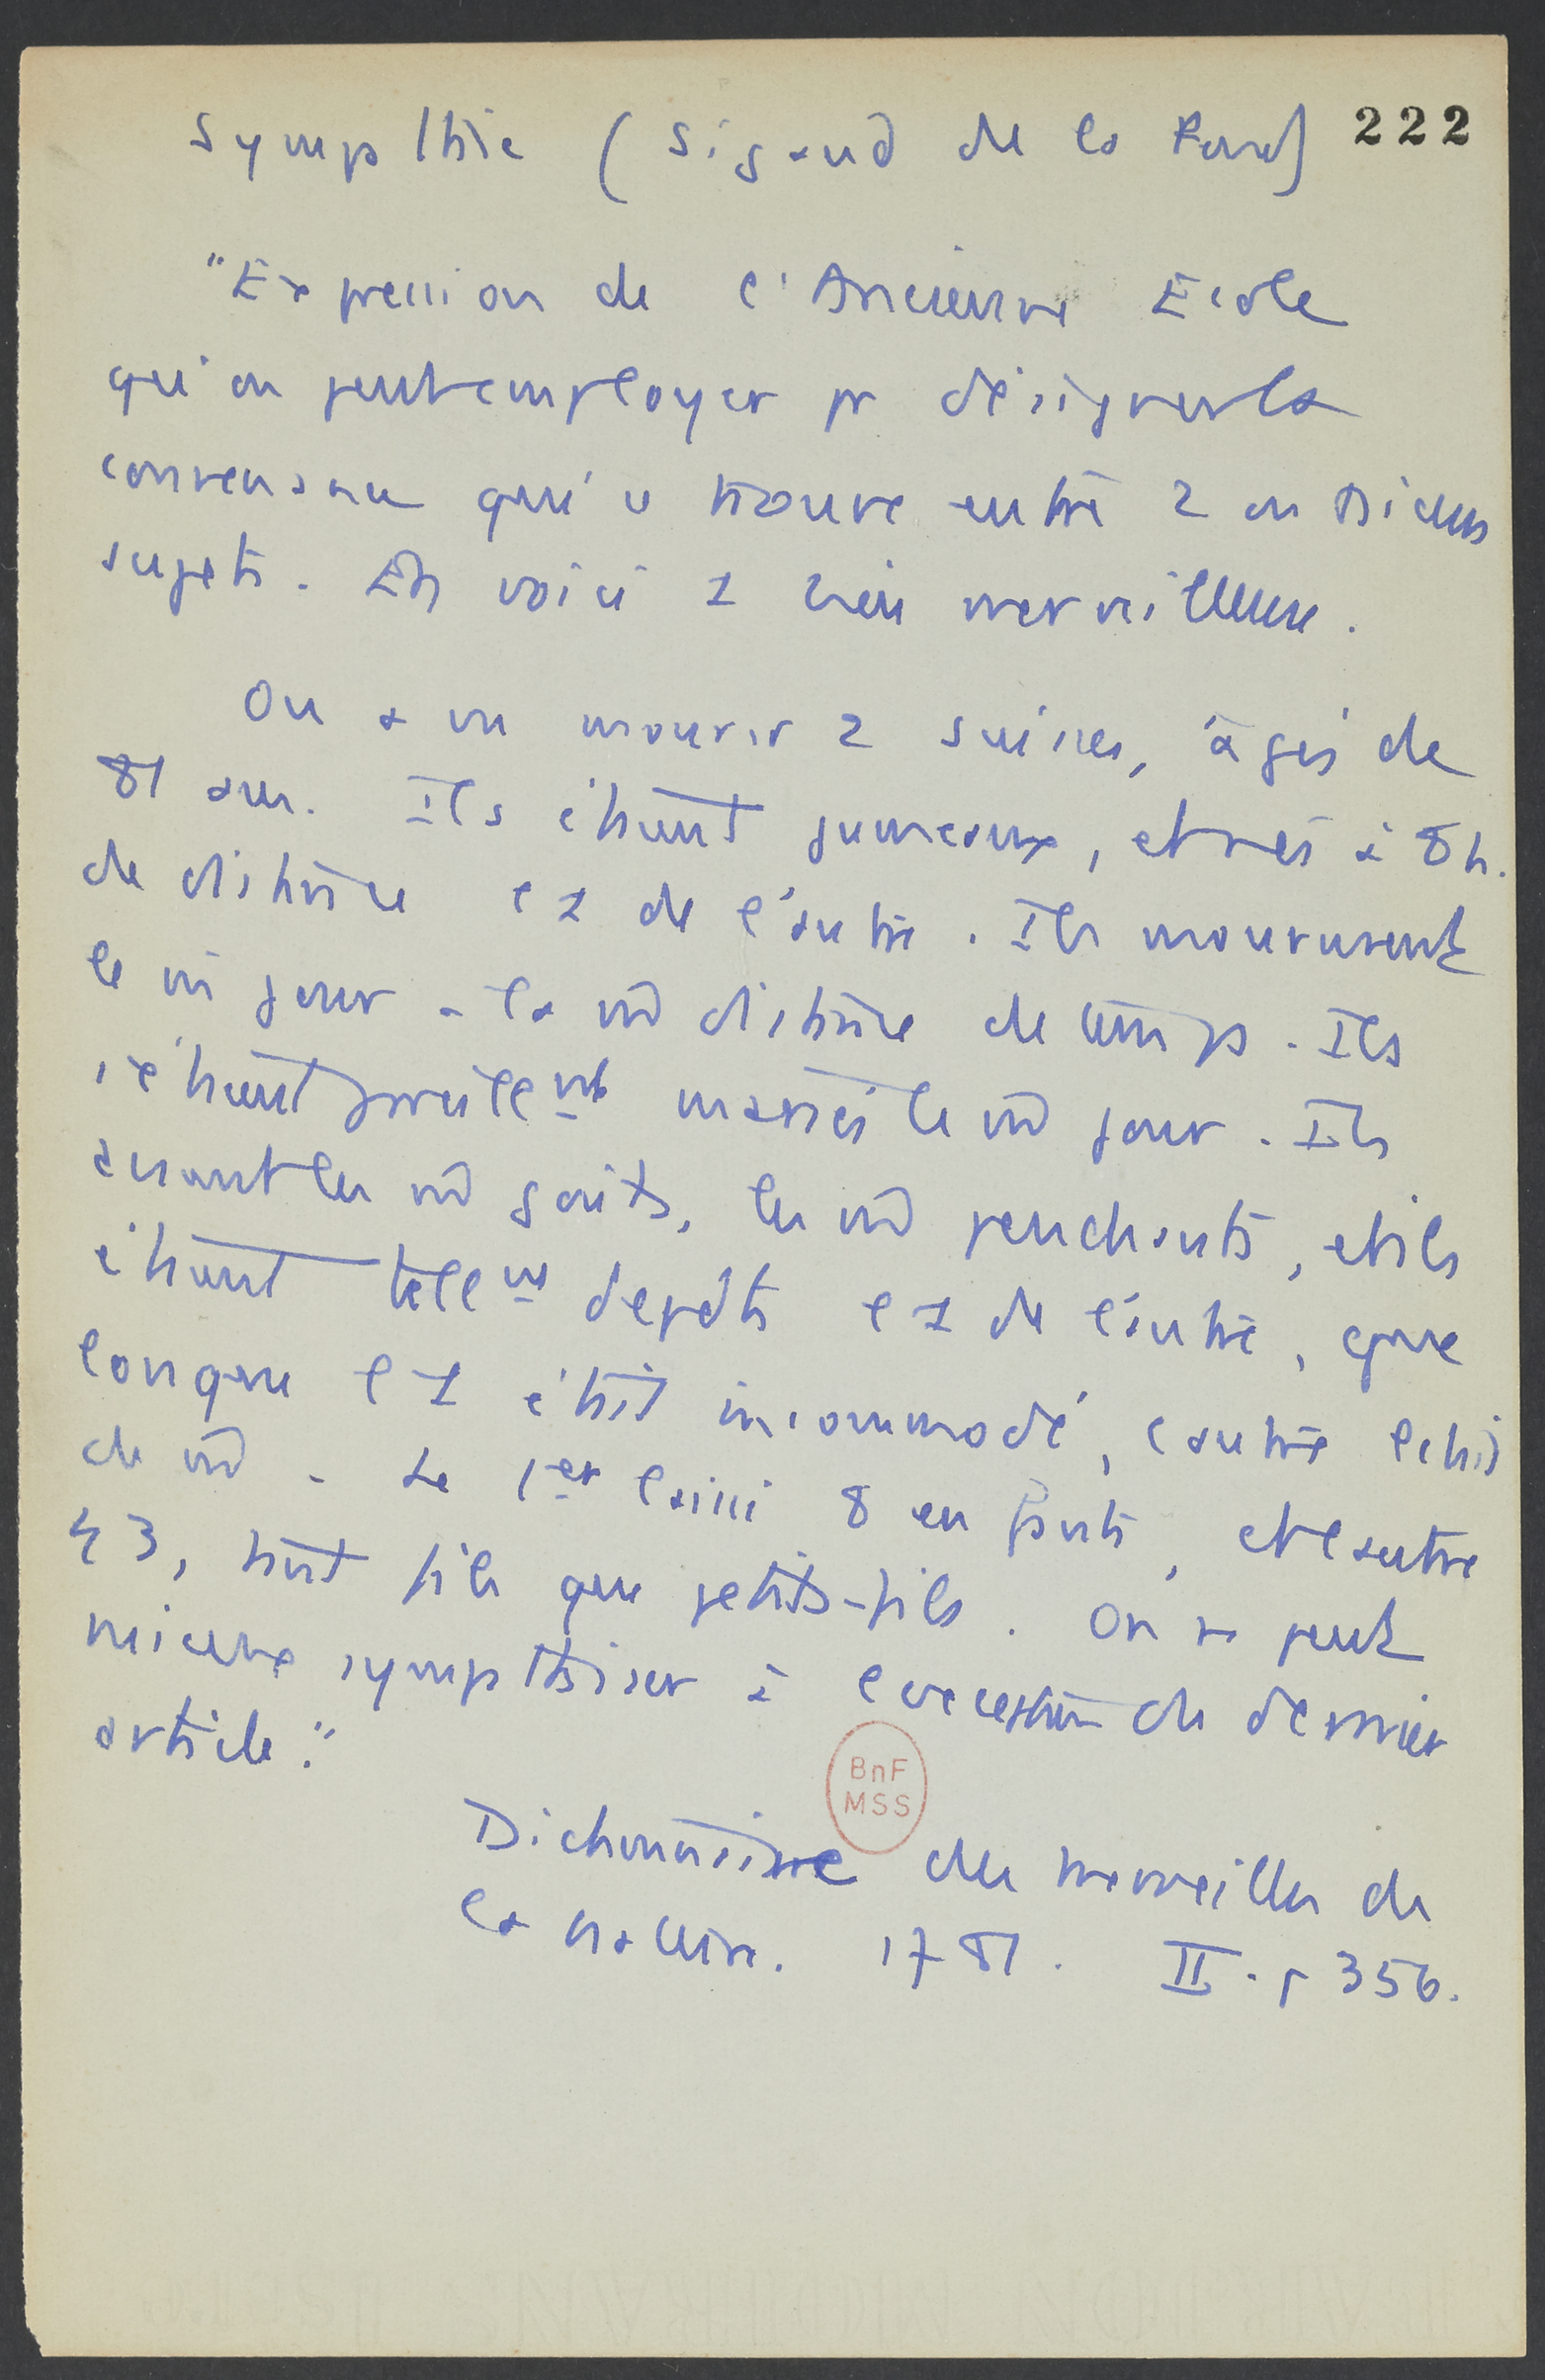 Sympathie (Sigaud de la Fond) 222
"Expression de l'Ancienne Ecole
qu'on peut employer pr désigner la
convenance qui se trouve entre 2 ou plusieurs
sujets. En voici 1 bien merveilleuse.
On a vu mourir 2 suisses, âgés de
81 ans. Ils étaient jumeaux, et nés à 8 h.
de distance l'1 de l'autre. Ils moururent
le m̂ jour à la m̂ distance de temps. Ils
s'étaient pareillemt mariés le m̂ jour. Ils
avaient les m̂ goûts, les m̂ penchants, et ils
étaient tellemt dépdts l'1 de l'autre, que
lorsque l'1 était incommodé, l'autre l'était
de m̂. Le 1er laissa 8 enfants, et l'autre
43, tant fils que petits-fils. On ne peut
mieux sympathiser à l'exception du dernier
article."
BnF
MSS
Dictionnaire des merveilles de
la nature. 1781. II. p 356.